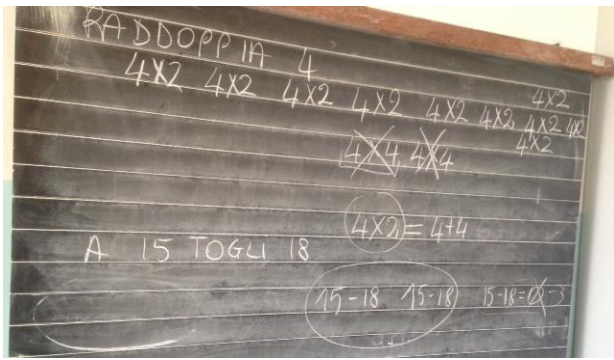 RADDOPPIA 4
4x2 4x2 4x2 4x2 4x2 4x2 4x2 4x2
4x2
4x2
4x4 4x4
4x2 = 4+4
A 15 TOGLI 18
15-18 15-18 15-18=